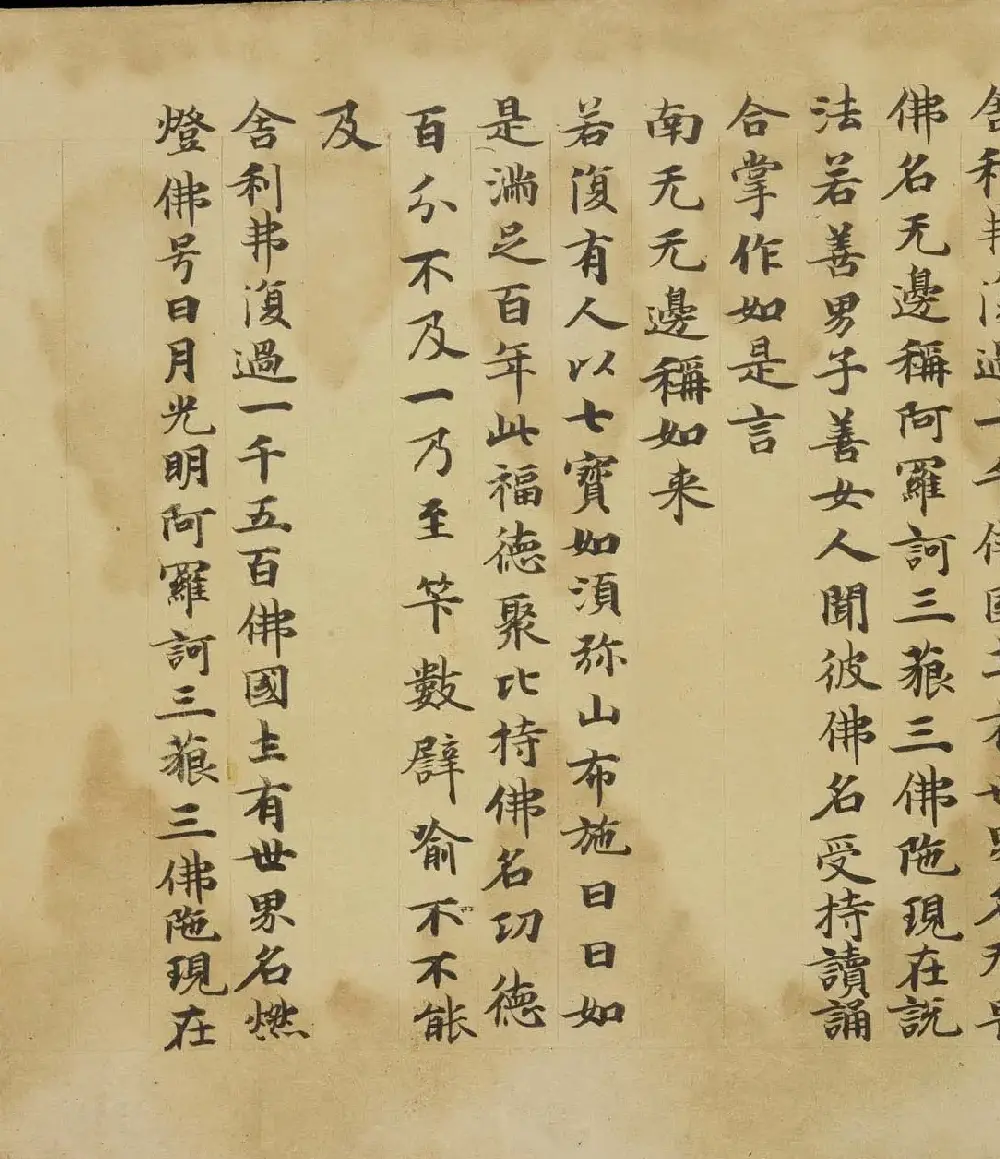 舍利弗復過十千佛國土有世界名無
佛名无邊稱阿羅訶三藐三佛陁現在說
法若善男子善女人聞彼佛名受持讀誦
合掌作如是言
南无无邊稱如来
若復有人以七寳如湏弥山布施日日如
是滿足百年此福德聚比持佛名功德
百分不及一乃至笇數譬喻不不能
及
舍利弗復過一千五百佛國土有世界名燃
燈佛号日月光明阿羅訶三藐三佛陁現在